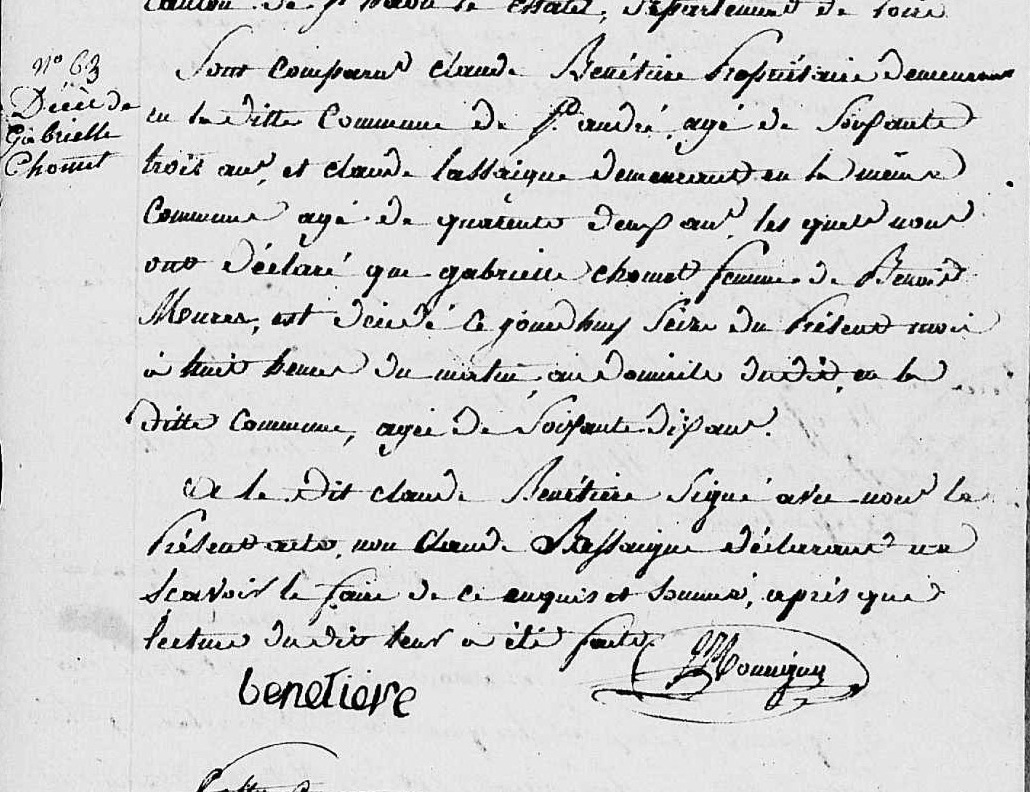 canton de St haon le chatel, département de Loire
N° 63
Décès de
Gabrielle
Chomet
Sont comparus claude Benétiere Propriétaire demeurant
en la ditte Commune de St. andré, agé de Soixante
trois ans, et claude Lassaigne demeurant en la même
Commune agé de quarente deux ans, les quels nous
ont déclaré que gabrielle chomet femme de Benoit
est décédé ce jourdhuy Seize du Présent mois
à huit heures du matin, au domicile dudit, en la
ditte Commune, agée de Soixante dix ans.
Et le dit claude Benétiere Signé avec nous le
Présent acte, non claude Lassaigne déclarant ne
Scavoir le faire de ce enquis et Sommé, après que
lecture du dit leur a été faite
benetiere